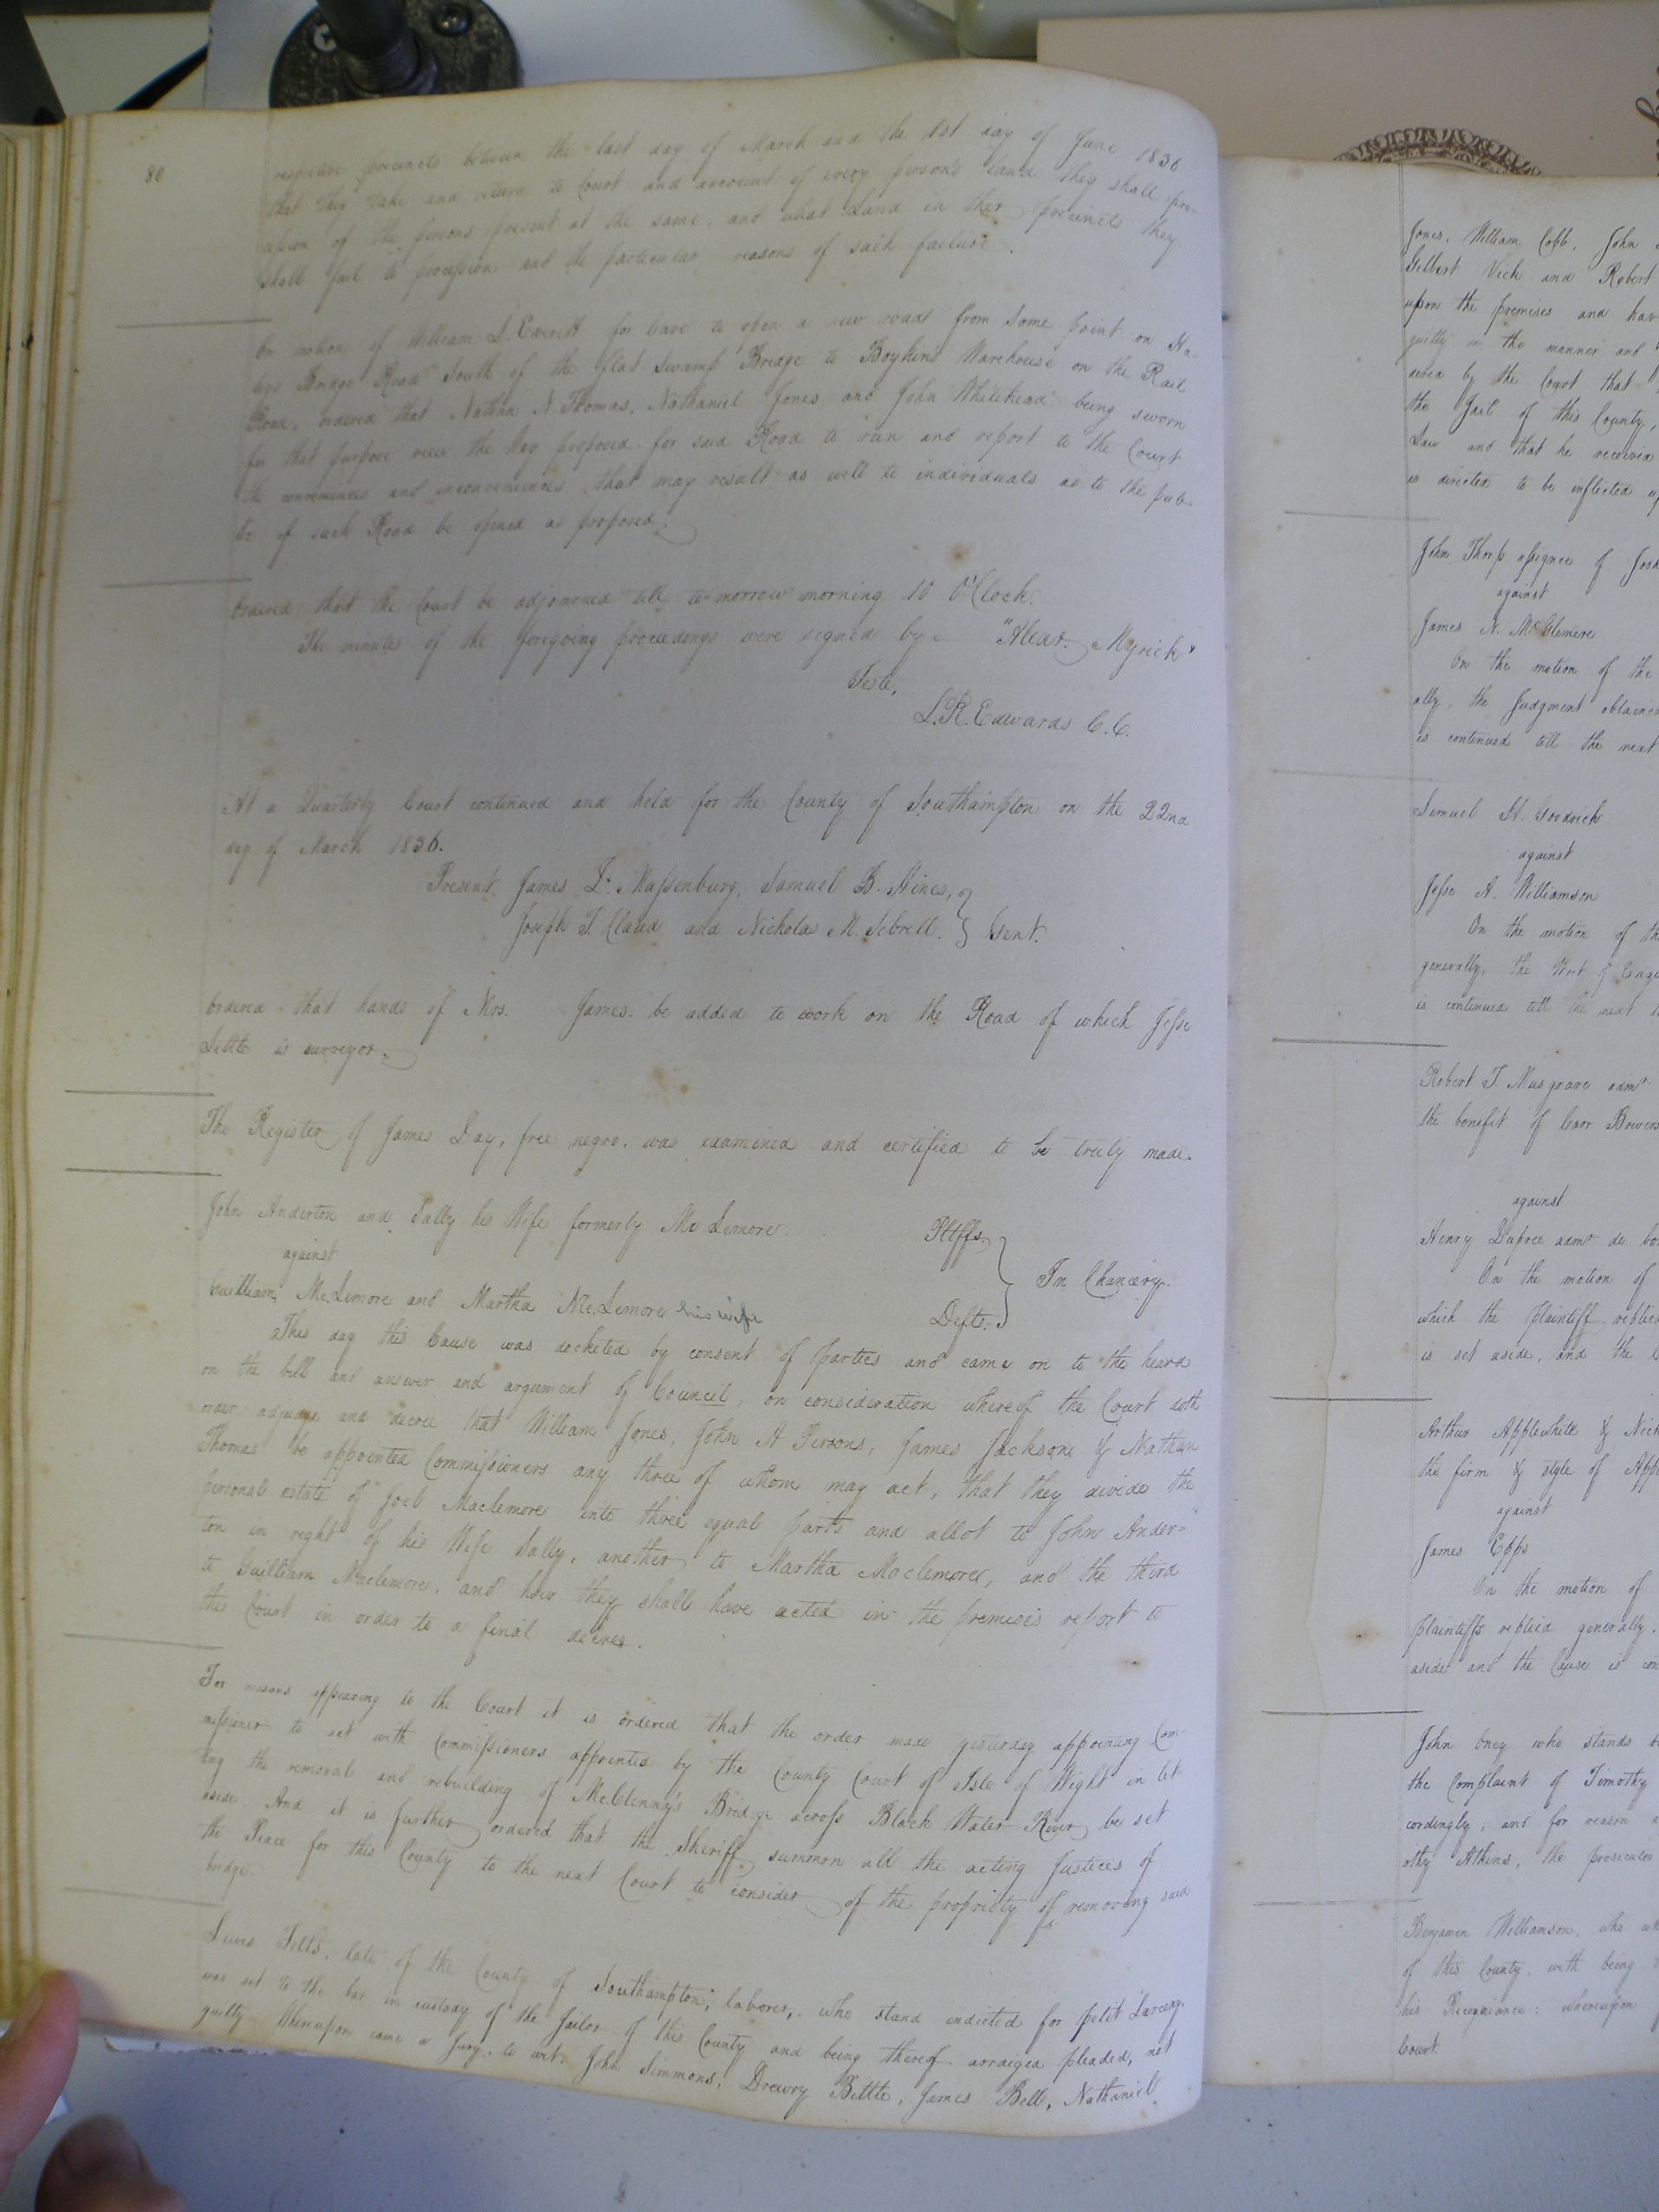 80
respective precincts between the last day of March and the 1st day of June 1836
that they take and return to Court and account of every persons land they shall pro-
cession of the persons present at the same, and what Land in their precincts they
shall fail to procession and the particular reasons of such failure.
On motion of William L. Everitt for leave to open a new road from some point on
Bridge Road South of the flat swamp Bridge to Boykin's Warehouse on the Rail
Road, ordered that Nathan N. Thomas, Nathaniel Jones and John Whitehead being sworn
for that purpose view the way proposed for said Road to run and report to the Court
the conveniences and inconveniences that may result as well to individuals as to the pub-
lic if such Road be opened as proposed.
Ordered that the Court be adjourned till to-morrow morning 10 O'Clock.
The minutes of the foregoing proceedings were signed by "Alexr. Myrick"
Teste,
L.R. Edwards C.C.
At a Quarterly Court continued and held for the County of Southampton on the 22nd
day of March 1836.
Present James D. Massenburg, Samuel B. Hines,
Joseph T. Claud and Nicholas M. Sebrell. } Gent.
Ordered that hands of Mrs. James be added to work on the Road of which Jesse
Little is surveyor.
The Register of James Day, free negro, was examined and certified to be truly made.
John Anderton and Sally his Wife formerly Mc Lemore Pltffs.
against } In Chancery.
Guilliam Mc.Lemore and Martha Mc.Lemore his wife Defts.
This day this Cause was docketed by consent of parties and came on to the heard
on the bill and answer and argument of Council, on consideration whereof the Court doth
order adjudge and decree that William Jones, John A Persons, James Jackson & Nathan
Thomas be appointed Commissioners any three of whom may act, that they divide the
personal estate of Joel Maclemore into three equal parts and allot to John Ander-
ton in right of his Wife Sally, another to Martha Maclemore, and the third
to Guilliam Maclemore, and how they shall have acted in the premises report to
the Court in order to a final decree.
For reasons appearing to the Court it is ordered that the order made yesterday appointing Com-
missioner to act with Commissioners appointed by the County Court of Isle of Wight in let-
ting the removal and rebuilding of McClenny's Bridge across Black Water River be set
aside. And it is further ordered that the Sheriff summon all the acting Justices of
the Peace for this County to the next Court to consider of the propriety of removing said
bridge.
Lewis Felts, late of the County of Southampton, laborer, who stand indicted for petit Larceny
was set to the bar in custody of the Jailor of this County and being thereof arraiged pleaded, not
guilty Whereupon came a Jury, to wit, John Simmons, Drewry Bittle, James Bell, Nathaniel
Jones, William Cobb, John
Gilbert Vick and Robert
upon the premises and hav
guilty in the manner and
dered by the Court that
the Jail of this County,
Law and that he received
is directed to be inflicted
John Thorp assignee of
against
James N. McClemore
On the motion of the
ally, the Judgment obtained
is continued till the next
Lemuel H. Goodrich
against
Jesse A. Williamson
On the motion of th
generally, the Writ of Enqu
is continued till the next
Robert T. Musgrave admr.
the benefit of Carr Bowers
against
Henry Dupree admr de bo
On the motion of
which the plaintiff replied
is set aside, and the
Arthur Applewhite & Nich
the firm & style of App
against
James Epps
On the motion of
plaintiffs replied generally.
aside and the Cause is con
John Oney who stands b
the Complaint of Timothy
cordingly, and for reason
othy Atkins, the prosecutor
Benjamin Williamson, who
of this County, with being
his Recognizance: whereupon
Court.